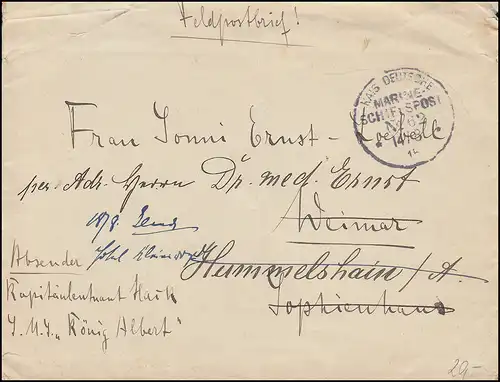 Feldpostbrief!
KAIS. DEUTSCHE
MARINE-
SCHIFFSPOST
No 62
* 14/8 *
14
Frau Tonni Ernst-
per. Adr. Herrn Dr. med. Ernst
Weimar
18/8. Jena
Hummelshain/A.
Absender
Kapitänleutnant Hack
Sophienhaus
S.M.S. „König Albert"
20,-